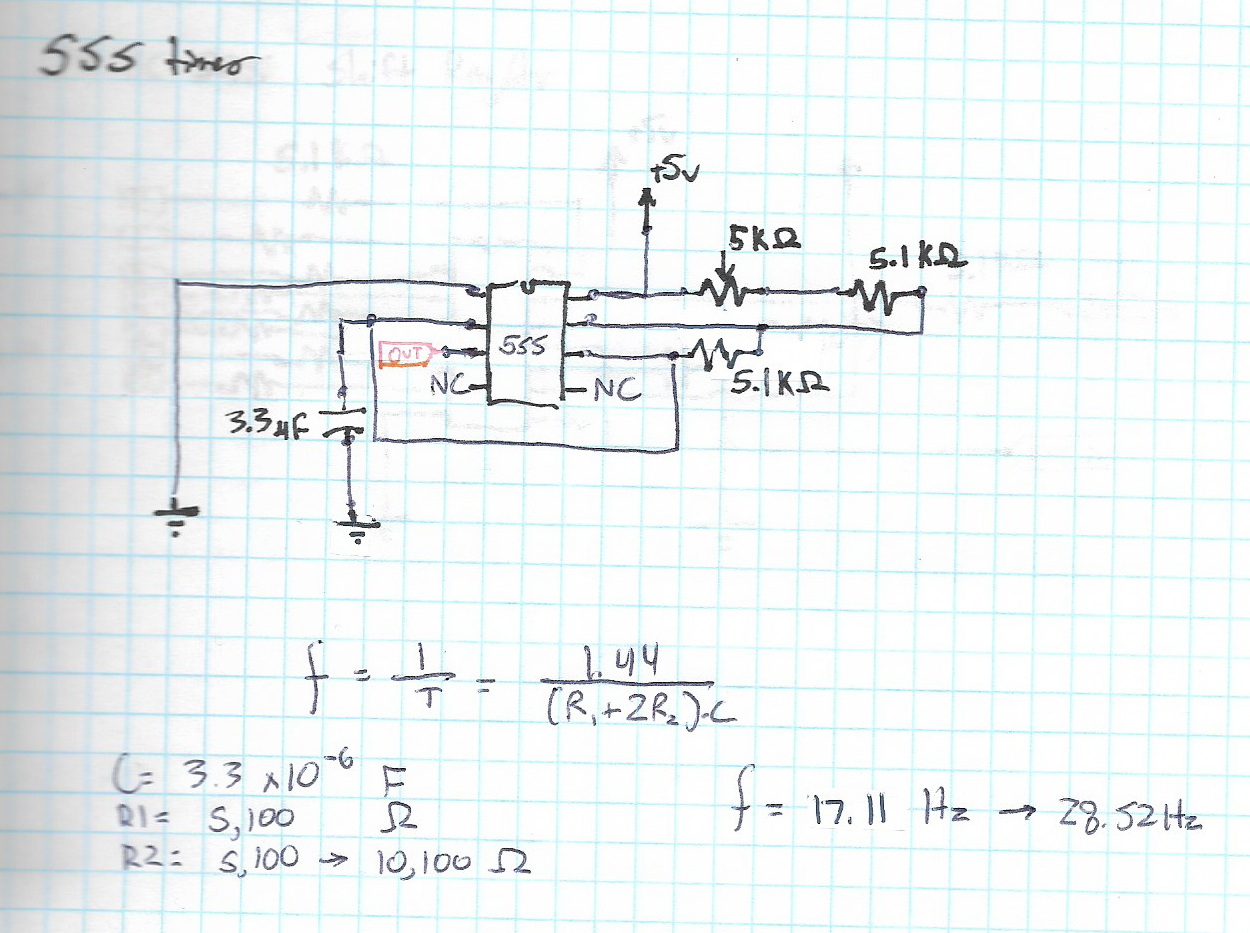 555 timer
+5v
5KΩ
5.1KΩ
OUT
555
5.1KΩ
NC
NC
3.3µF
f = 1/T = 1.44/(R₁+2R₂)·C
C= 3.3 x10⁻⁶ F
R1= 5,100 Ω
R2= 5,100 → 10,100 Ω
f = 17.11 Hz → 28.52Hz